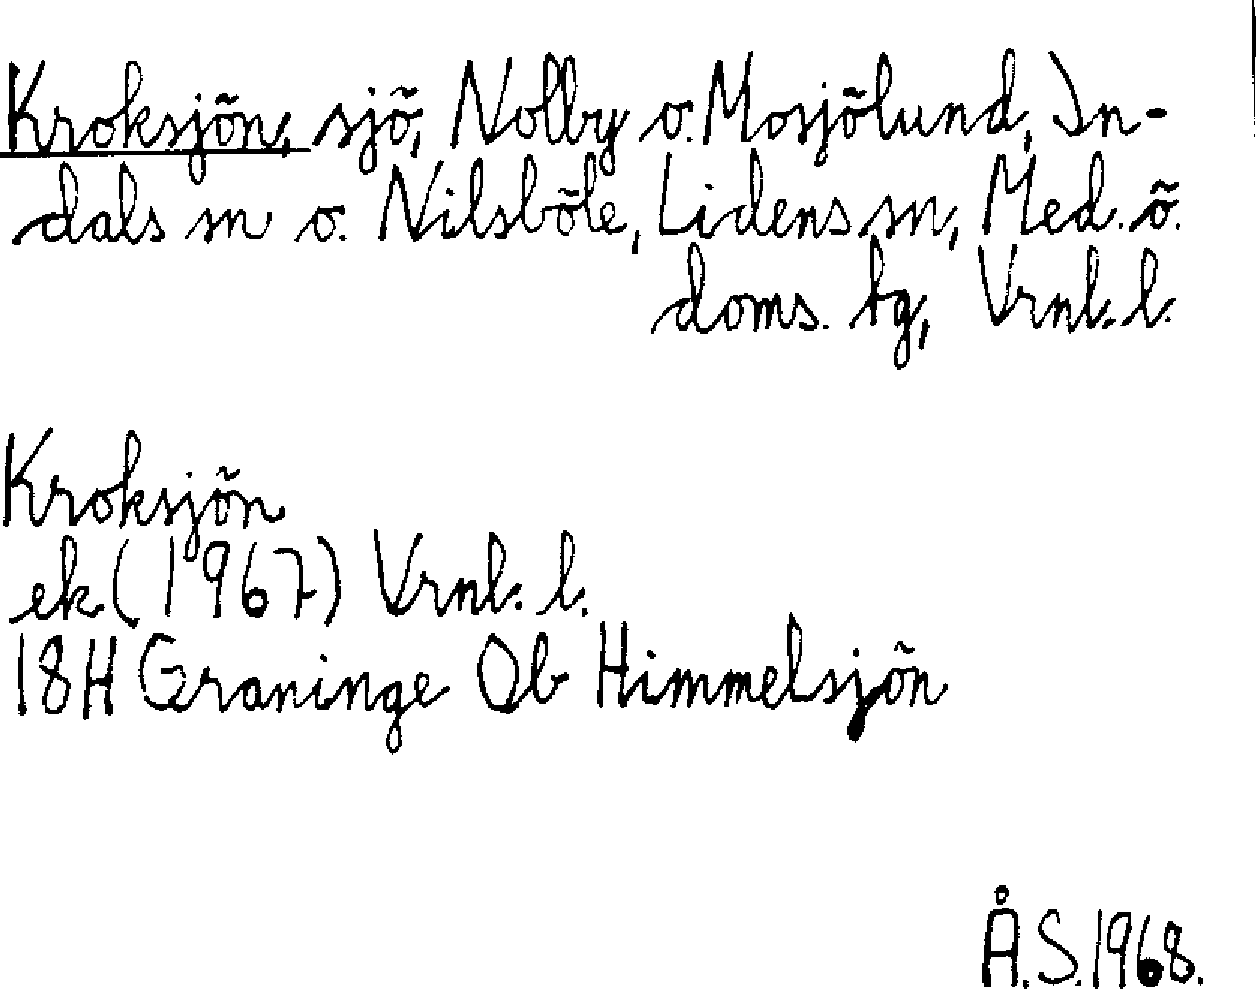 Kroksjön, sjö, Nolby o. Mosjölund, In-
dals sn o. Nilsböle, Lidens sn, Med. ö.
doms. tg, Vrnl. l.
Kroksjön
ek (1967) Vrnl. l.
18H Graninge Ob Himmelsjön
Å.S. 1968.